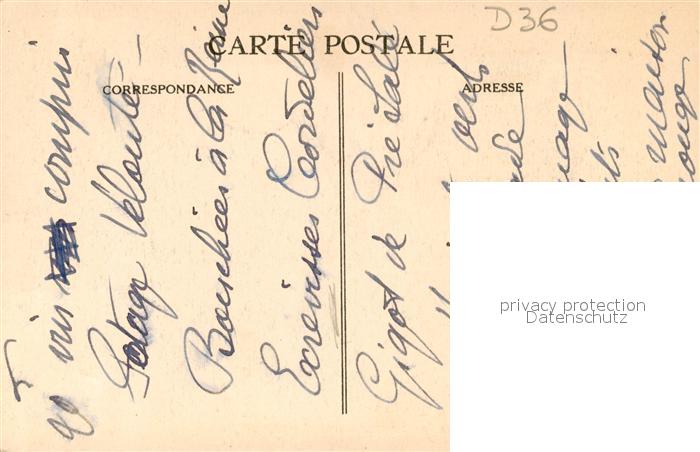 D36
CARTE POSTALE
CORRESPONDANCE
ADRESSE
vin compris
Potage Velouté -
Bouchées à la Reine
Ecrevisses Cordeliers
Gigot de Pré Salé
verts
maison
privacy protection
Datenschutz